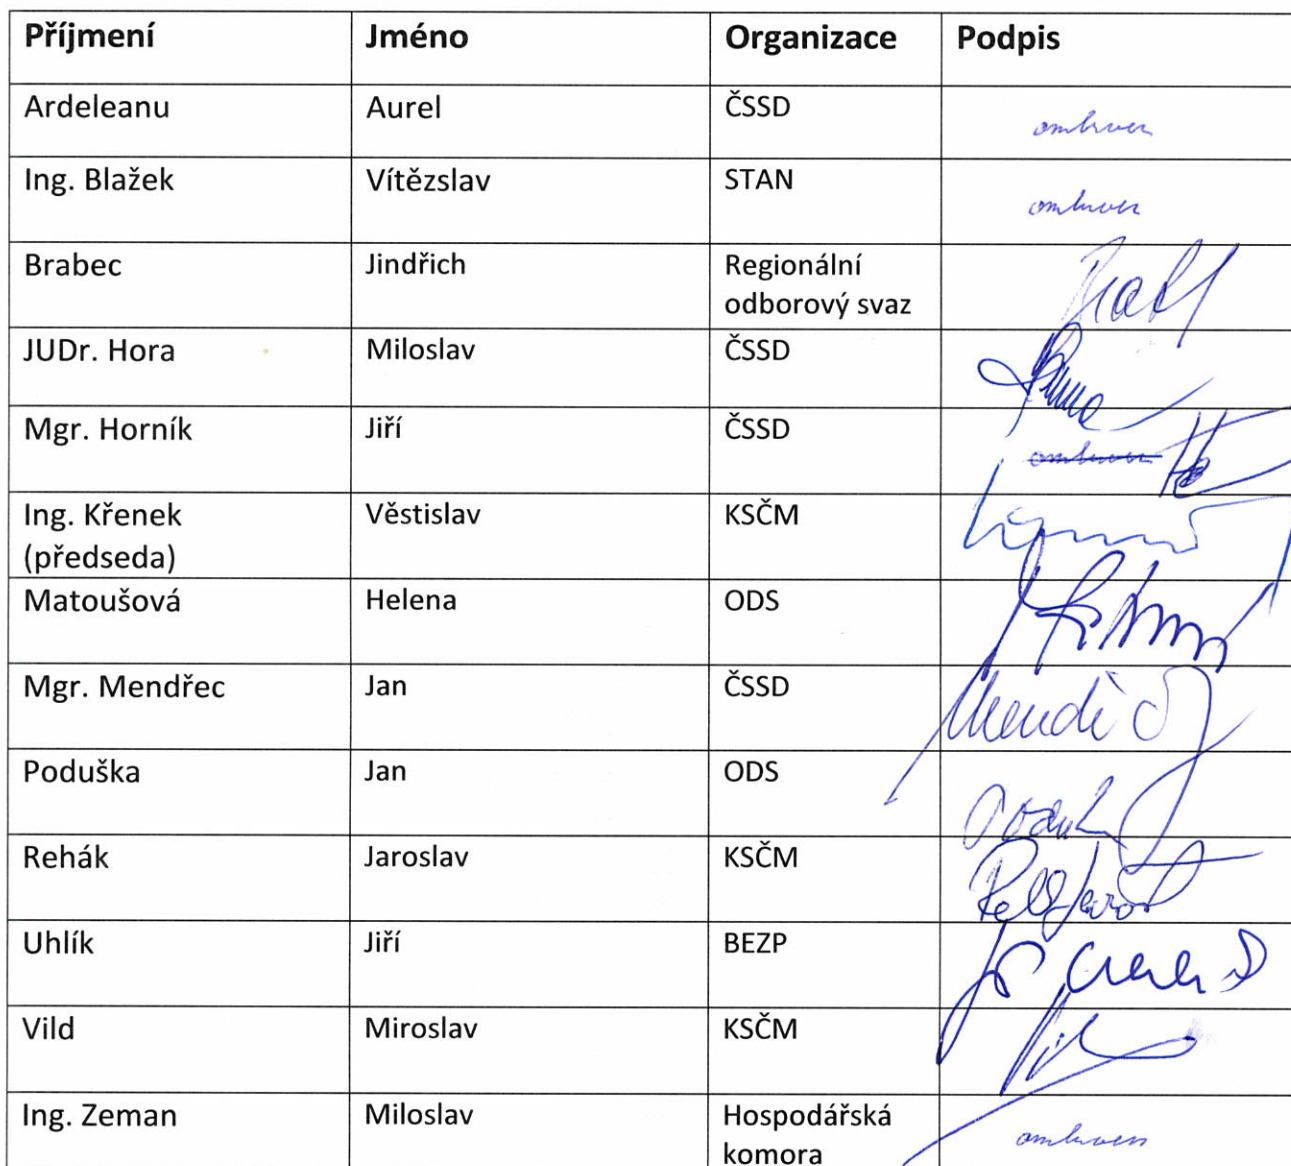 Příjmení Jméno Organizace Podpis
Ardeleanu Aurel ČSSD omluven
Ing. Blažek Vítězslav STAN omluven
Brabec Jindřich Regionální
odborový svaz
JUDr. Hora Miloslav ČSSD
Mgr. Horník Jiří ČSSD omluven
Ing. Křenek Věstislav KSČM
(předseda)
Matoušová Helena ODS
Mgr. Mendřec Jan ČSSD
Poduška Jan ODS
Rehák Jaroslav KSČM
Uhlík Jiří BEZP
Vild Miroslav KSČM
Ing. Zeman Miloslav Hospodářská omluven
komora